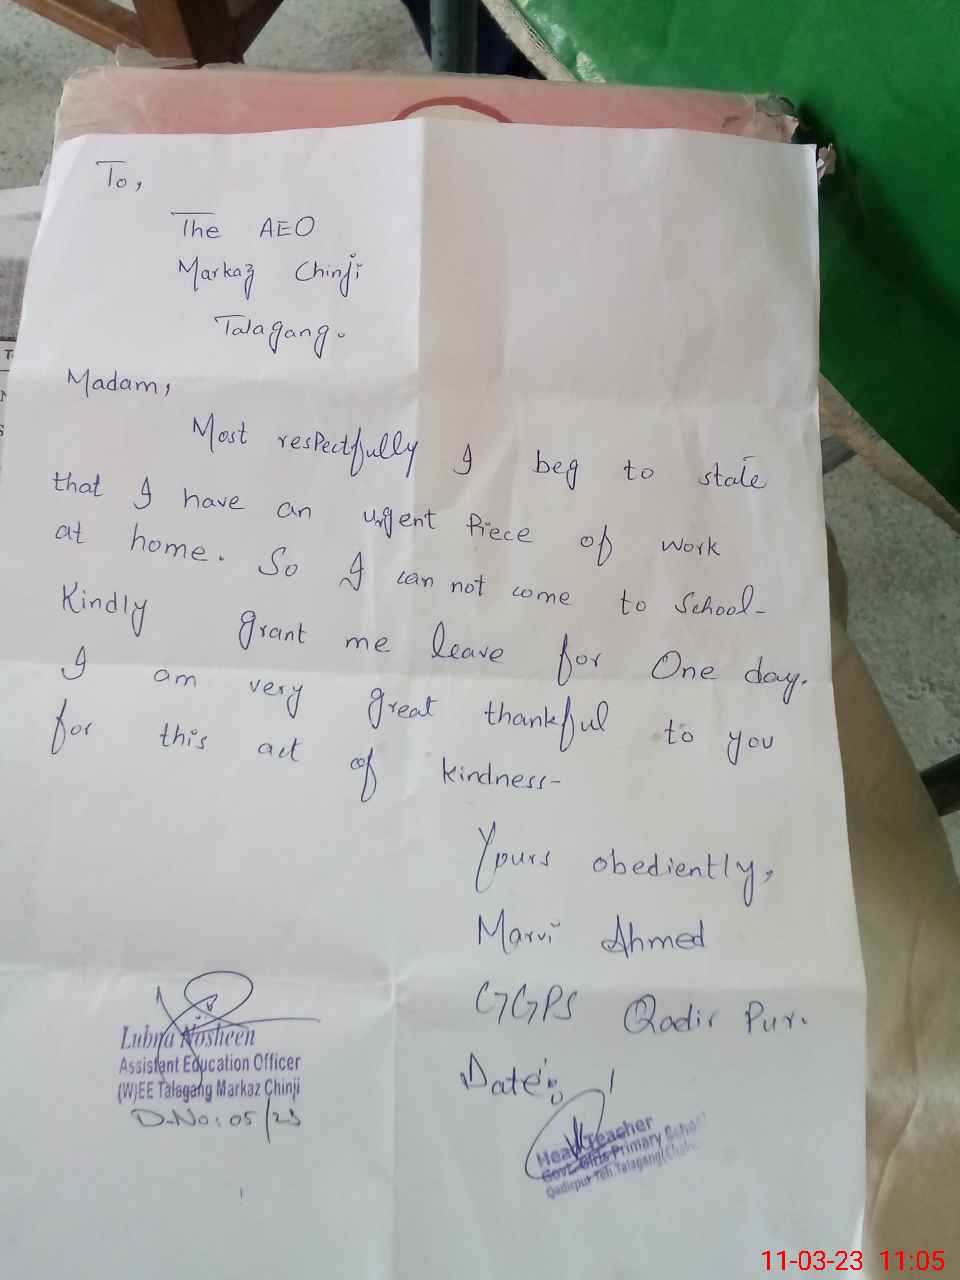 To,
The AEO
Markaz Chinji
Talagang.
Madam,
Most respectfully I beg to state
that I have an urgent Piece of work
at home. So I can not come to School-
Kindly grant me leave for One day.
I am very great thankful to you
for this act of kindness-
Yours obediently,
Marvi Ahmed
GGPS Qadir Pur.
Date:
Lubna Nosheen
Assistant Education Officer
(W)EE Talagang Markaz Chinji
D-No: 05/23
Head Teacher
Govt. Girls Primary School
Qadirpur Teh Talagang
11-03-23 11:05